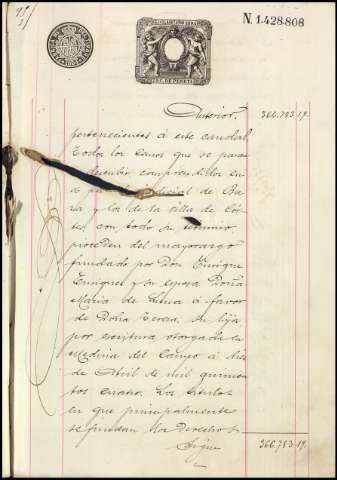 N. 1.428.808
Anterior. 366.753 19.
pertenecientes á este caudal.
Todos los censos que se pasan
á describir comprendidos en
el partido judicial de Ba
za y los de la villa de Cór
tes con todo su término,
proceden del mayorazgo
fundado por Don Enrique
Enriquez y su esposa Doña
Maria de Luna á favor
de Doña Teresa, su hija,
por escritura otorgada en
Medina del Campo á
de Abril de mil quinien
tos cuatro. Los títulos
en que principalmente
se fundan los derechos
Sigue 366.753 19.